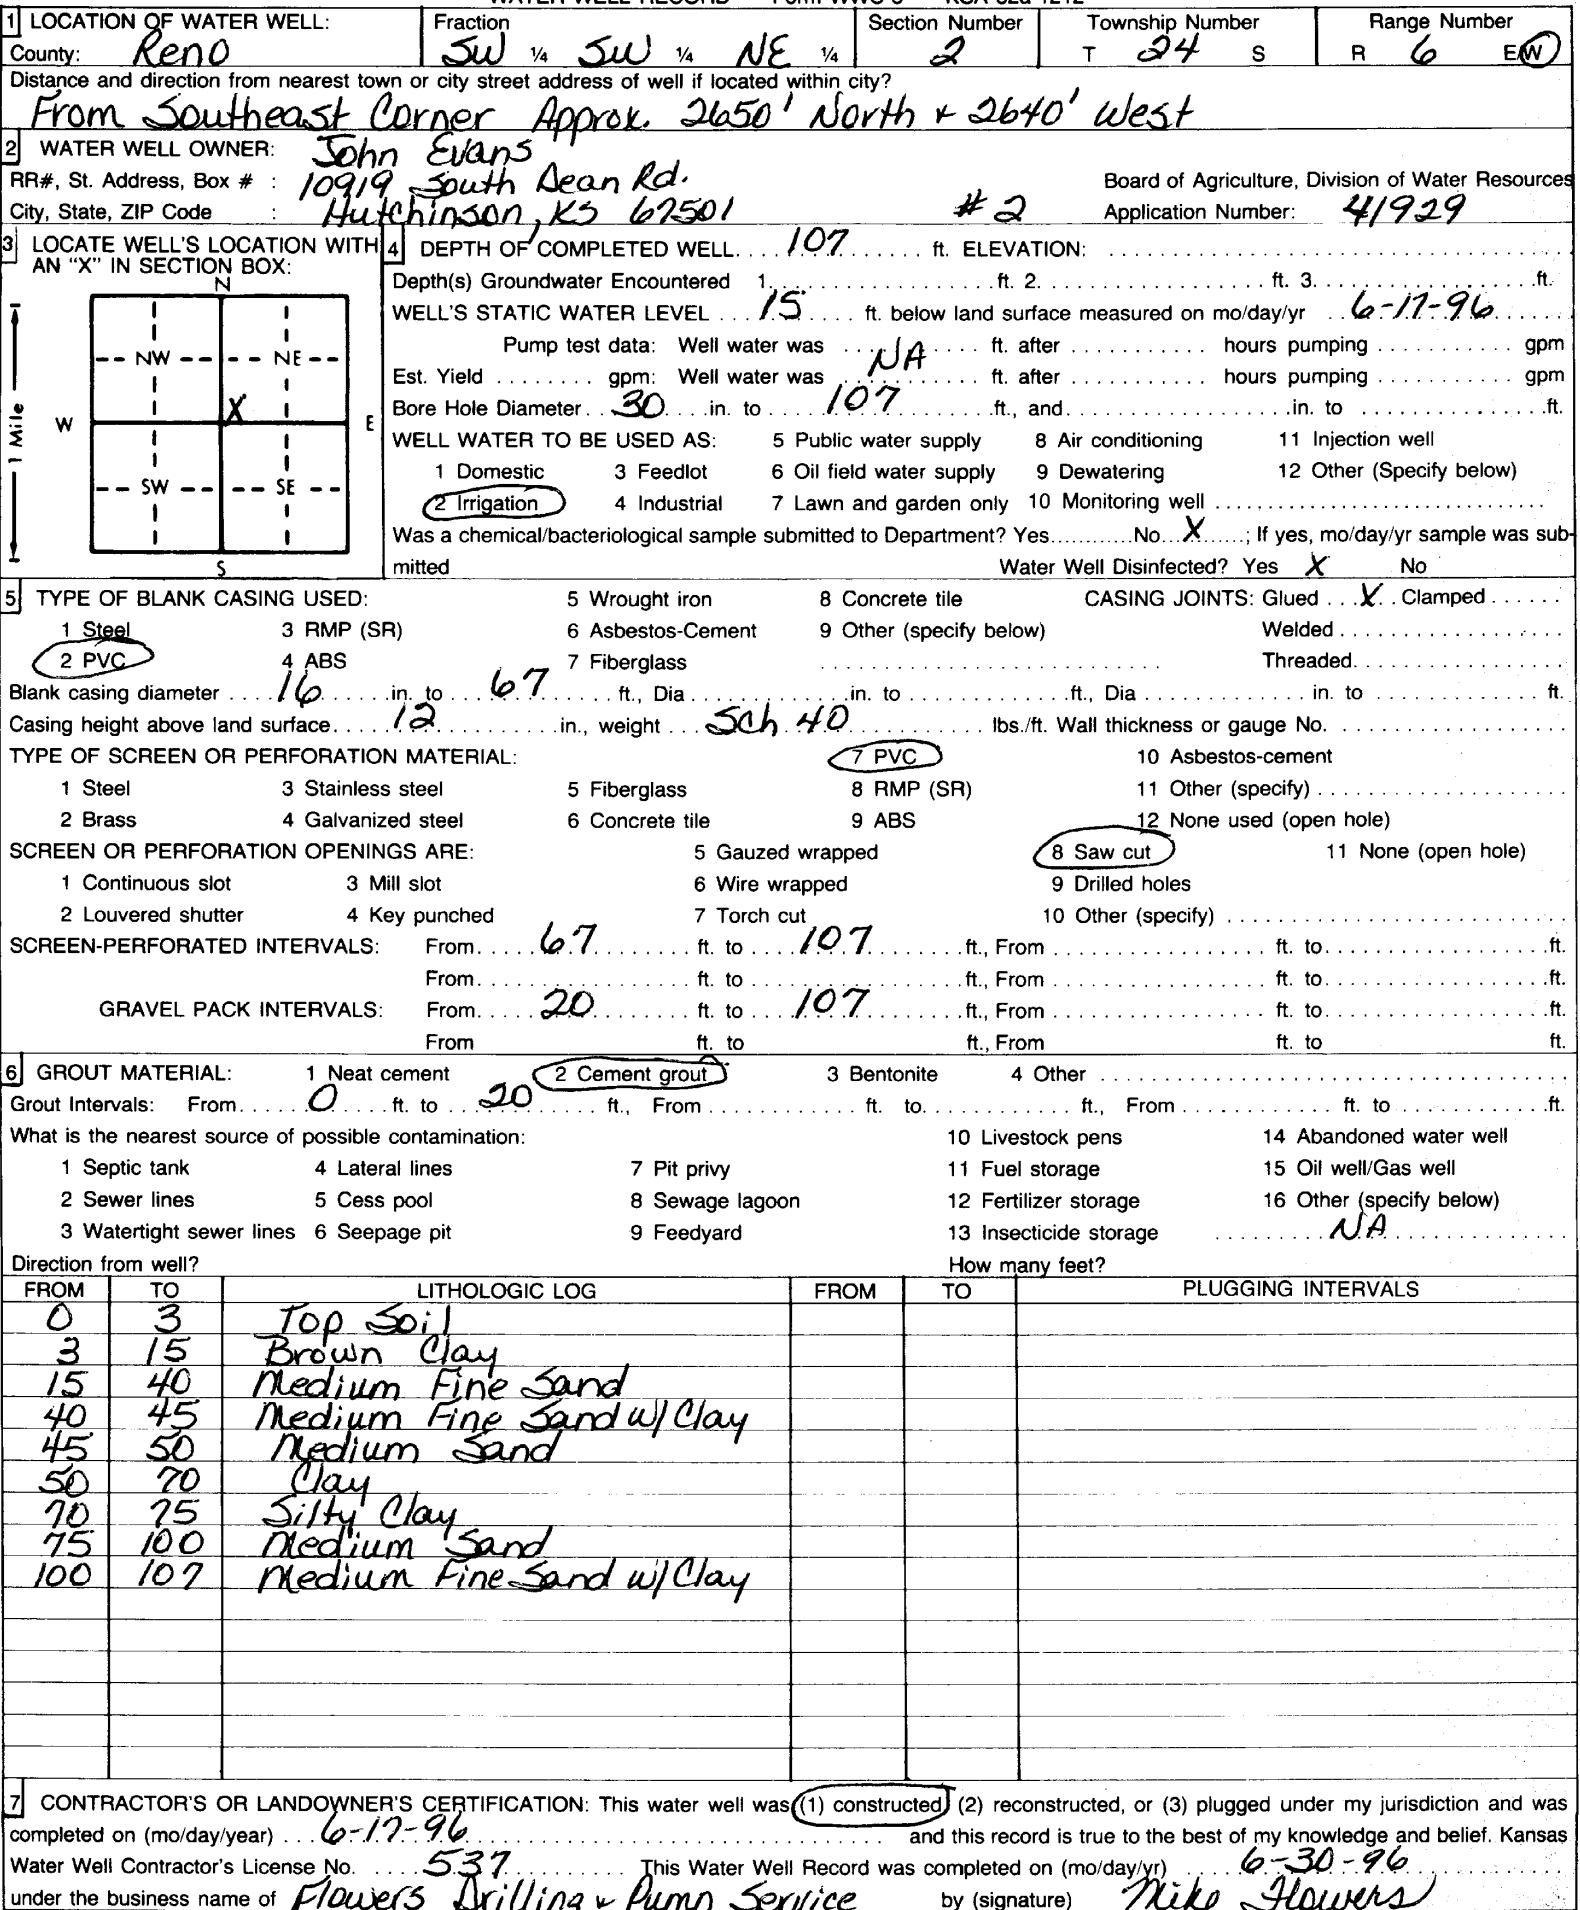 WATER WELL RECORD Form WWC-5 KSA 82a-1212
1 LOCATION OF WATER WELL: Fraction Section Number Township Number Range Number
County: Reno SW ¼ SW ¼ NE ¼ 2 T 24 S R 6 E/W
Distance and direction from nearest town or city street address of well if located within city?
From Southeast Corner Approx. 2650' North + 2640' West
2 WATER WELL OWNER: John Evans
RR#, St. Address, Box # : 10919 South Dean Rd. Board of Agriculture, Division of Water Resources
City, State, ZIP Code : Hutchinson, KS 67501 #2 Application Number: 41929
3 LOCATE WELL'S LOCATION WITH AN "X" IN SECTION BOX:
N
NW NE
X
W E
1 Mile
SW SE
S
4 DEPTH OF COMPLETED WELL 107 ft. ELEVATION:
Depth(s) Groundwater Encountered 1. ft. 2. ft. 3. ft.
WELL'S STATIC WATER LEVEL 15 ft. below land surface measured on mo/day/yr 6-17-96
Pump test data: Well water was NA ft. after hours pumping gpm
Est. Yield gpm: Well water was ft. after hours pumping gpm
Bore Hole Diameter 30 in. to 107 ft., and in. to ft.
WELL WATER TO BE USED AS: 5 Public water supply 8 Air conditioning 11 Injection well
1 Domestic 3 Feedlot 6 Oil field water supply 9 Dewatering 12 Other (Specify below)
2 Irrigation 4 Industrial 7 Lawn and garden only 10 Monitoring well
Was a chemical/bacteriological sample submitted to Department? Yes No X ; If yes, mo/day/yr sample was sub-
mitted Water Well Disinfected? Yes X No
5 TYPE OF BLANK CASING USED: 5 Wrought iron 8 Concrete tile CASING JOINTS: Glued X Clamped
1 Steel 3 RMP (SR) 6 Asbestos-Cement 9 Other (specify below) Welded
2 PVC 4 ABS 7 Fiberglass Threaded
Blank casing diameter 16 in. to 67 ft., Dia in. to ft., Dia in. to ft.
Casing height above land surface 12 in., weight Sch 40 lbs./ft. Wall thickness or gauge No.
TYPE OF SCREEN OR PERFORATION MATERIAL: 7 PVC 10 Asbestos-cement
1 Steel 3 Stainless steel 5 Fiberglass 8 RMP (SR) 11 Other (specify)
2 Brass 4 Galvanized steel 6 Concrete tile 9 ABS 12 None used (open hole)
SCREEN OR PERFORATION OPENINGS ARE: 5 Gauzed wrapped 8 Saw cut 11 None (open hole)
1 Continuous slot 3 Mill slot 6 Wire wrapped 9 Drilled holes
2 Louvered shutter 4 Key punched 7 Torch cut 10 Other (specify)
SCREEN-PERFORATED INTERVALS: From 67 ft. to 107 ft., From ft. to ft.
From ft. to ft., From ft. to ft.
GRAVEL PACK INTERVALS: From 20 ft. to 107 ft., From ft. to ft.
From ft. to ft., From ft. to ft.
6 GROUT MATERIAL: 1 Neat cement 2 Cement grout 3 Bentonite 4 Other
Grout Intervals: From 0 ft. to 20 ft., From ft. to ft., From ft. to ft.
What is the nearest source of possible contamination: 10 Livestock pens 14 Abandoned water well
1 Septic tank 4 Lateral lines 7 Pit privy 11 Fuel storage 15 Oil well/Gas well
2 Sewer lines 5 Cess pool 8 Sewage lagoon 12 Fertilizer storage 16 Other (specify below)
3 Watertight sewer lines 6 Seepage pit 9 Feedyard 13 Insecticide storage NA
Direction from well? How many feet?
FROM TO LITHOLOGIC LOG FROM TO PLUGGING INTERVALS
0 3 Top Soil
3 15 Brown Clay
15 40 Medium Fine Sand
40 45 Medium Fine Sand w/ Clay
45 50 Medium Sand
50 70 Clay
70 75 Silty Clay
75 100 Medium Sand
100 107 Medium Fine Sand w/ Clay
7 CONTRACTOR'S OR LANDOWNER'S CERTIFICATION: This water well was (1) constructed, (2) reconstructed, or (3) plugged under my jurisdiction and was
completed on (mo/day/year) 6-17-96 and this record is true to the best of my knowledge and belief. Kansas
Water Well Contractor's License No. 537 This Water Well Record was completed on (mo/day/yr) 6-30-96
under the business name of Flowers Drilling & Pump Service by (signature) Mike Flowers